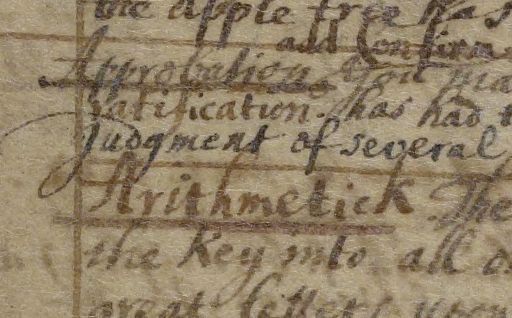 the apple tree has
and Confirm
Approbation You ma
ratification. has had t
Judgment of several
Arithmetick. The
the Key into all o
great letters upon